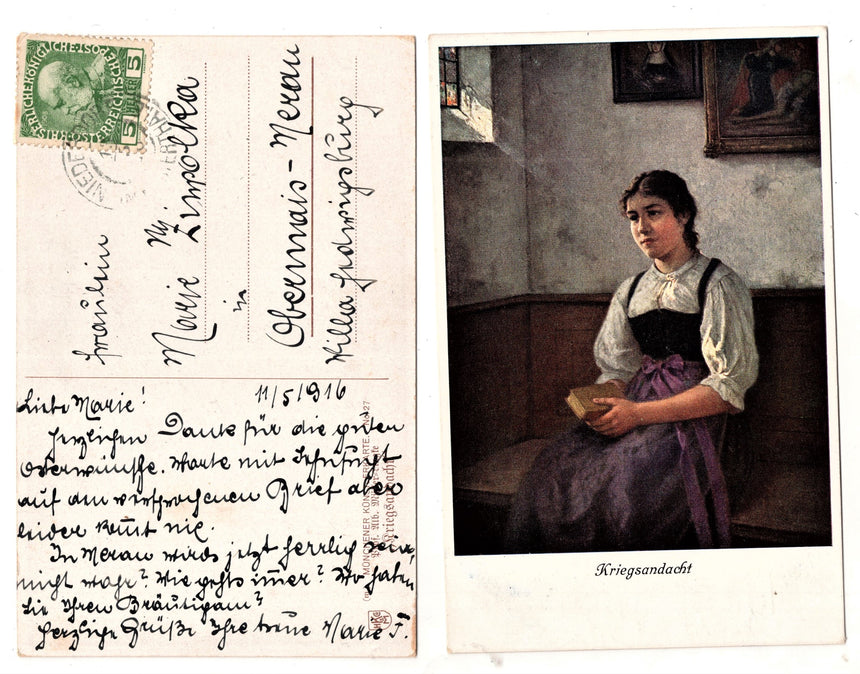 KAISERLICHE KÖNIGLICHE ÖSTERREICHISCHE POST
5 HELLER 5
NIEDER
Fräulein
Marie
in
Obermais-Meran
Villa Ludwigsburg
11/5/916
Liebe Marie!
Herzlichen Dank für die guten
Osterwünsche. Warte mit Sehnsucht
auf den versprochenen Brief aber
leider kommt nie.
In Meran wirds jetzt herrlich sein,
nicht wahr? Wie gehts immer? Wo haben
Sie Ihren Bräutigam?
Herzliche Grüße Ihre treue Marie F.
MÜNCHENER KÜNSTLERKARTE
Kriegsandacht
Kriegsandacht